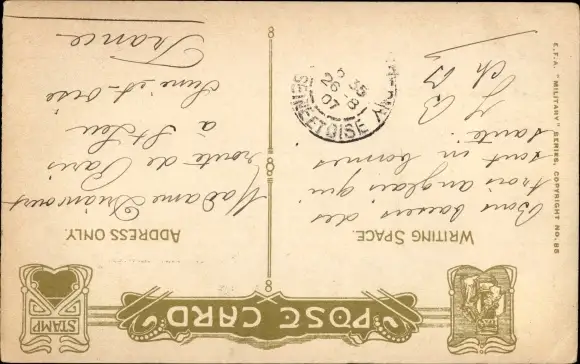 POST CARD
STAMP
WRITING SPACE.
ADDRESS ONLY.
Bons baisers des
trois anglais qui
sont in bonnes
santé
Y B
Ch B
Madame
route de Paris
a St Leu
Seine et-oise
France
SEINE ET OISE
26 -8
07
E.F.A. "MILITARY" SERIES, COPYRIGHT NO. 88